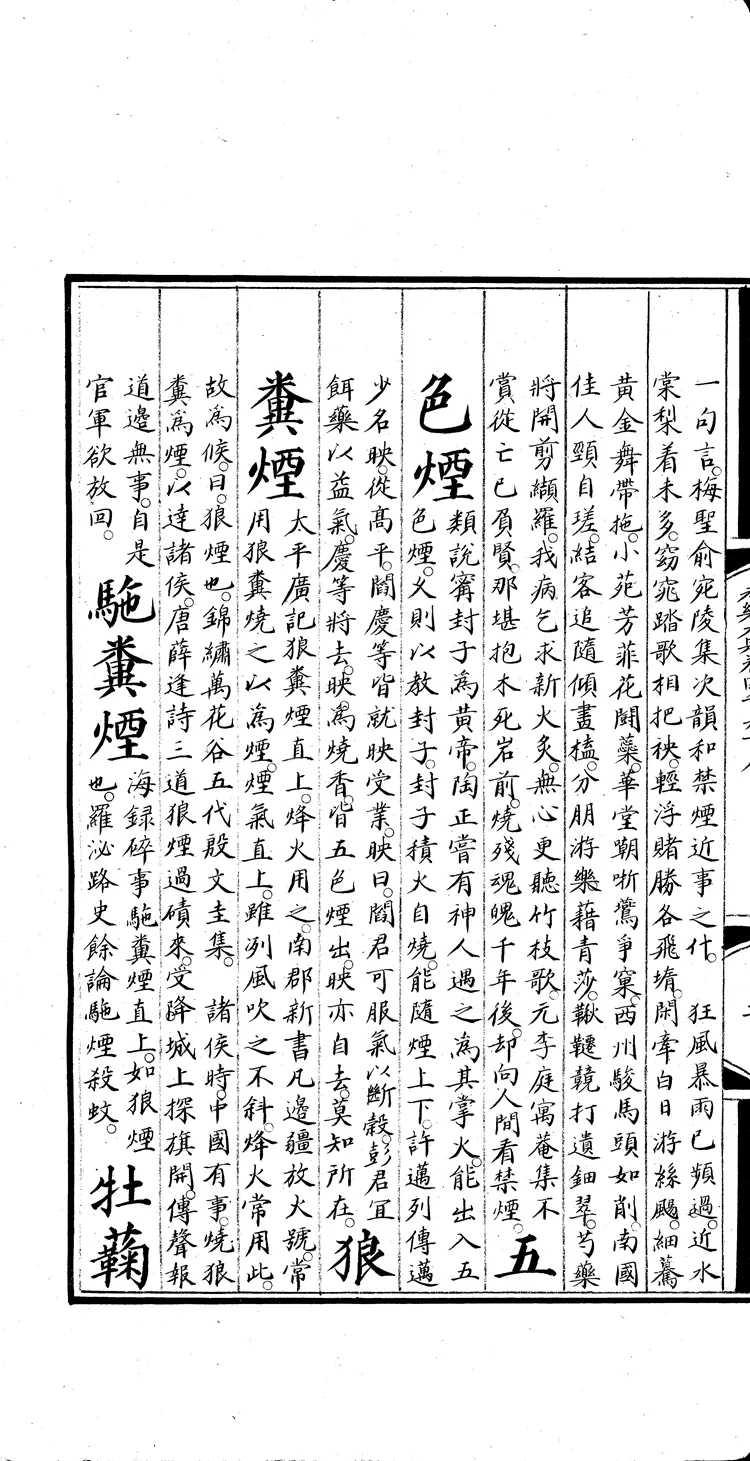 一句言。梅聖俞宛陵集次韻和禁煙近事之什。 狂風暴雨已頻過。近水
棠梨着未多。窈窕踏歌相把袂。輕浮賭勝各飛堶。閑牽白日游絲颺。細驀
黃金舞帶拖。小苑芳菲花鬭蘂。華堂嘲哳鶯爭窠。西川駿馬頭如削。南國
佳人頸自瑳。結客追隨傾畫榼。分朋游樂藉青莎。鞦韆競打遺鈿翠。芍藥
將開剪纈羅。我病乞求新火炙。無心更聽竹枝歌。元李庭寓菴集不
賞從亡已負賢。那堪抱木死岩前。燒殘魂魄千年後。却向人間看禁煙。 五
色煙 類說甯封子為黃帝。陶正嘗有神人遇之為其掌火。能出入五
色煙。乂則以教封子。封子積火自燒。能隨煙上下。許邁列傳邁
少名映。從髙平。閻慶等皆就映受業。映曰。閻君可服氣以斷榖。彭君宜
餌藥以益氣。慶等將去。映為燒香。皆五色煙出。映亦自去。莫知所在。 狼
糞煙 太平廣記狼糞煙直上。烽火用之。南郡新書凡邊疆放火號。常
用狼糞燒之以為煙。煙氣直上。雖冽風吹之不斜。烽火常用此。
故為候。曰。狼煙也。錦繡萬花谷五代殷文圭集。 諸侯時。中國有事。燒狼
糞爲煙。以達諸侯。唐薛逢詩三道狼煙過磧來。受降城上探旗開。傳聲報
道邊無事。自是
官軍欲放回。
駞糞煙 海録碎事駞糞煙直上。如狼煙
也。羅泌路史餘論駞煙殺蚊。
牡蘜